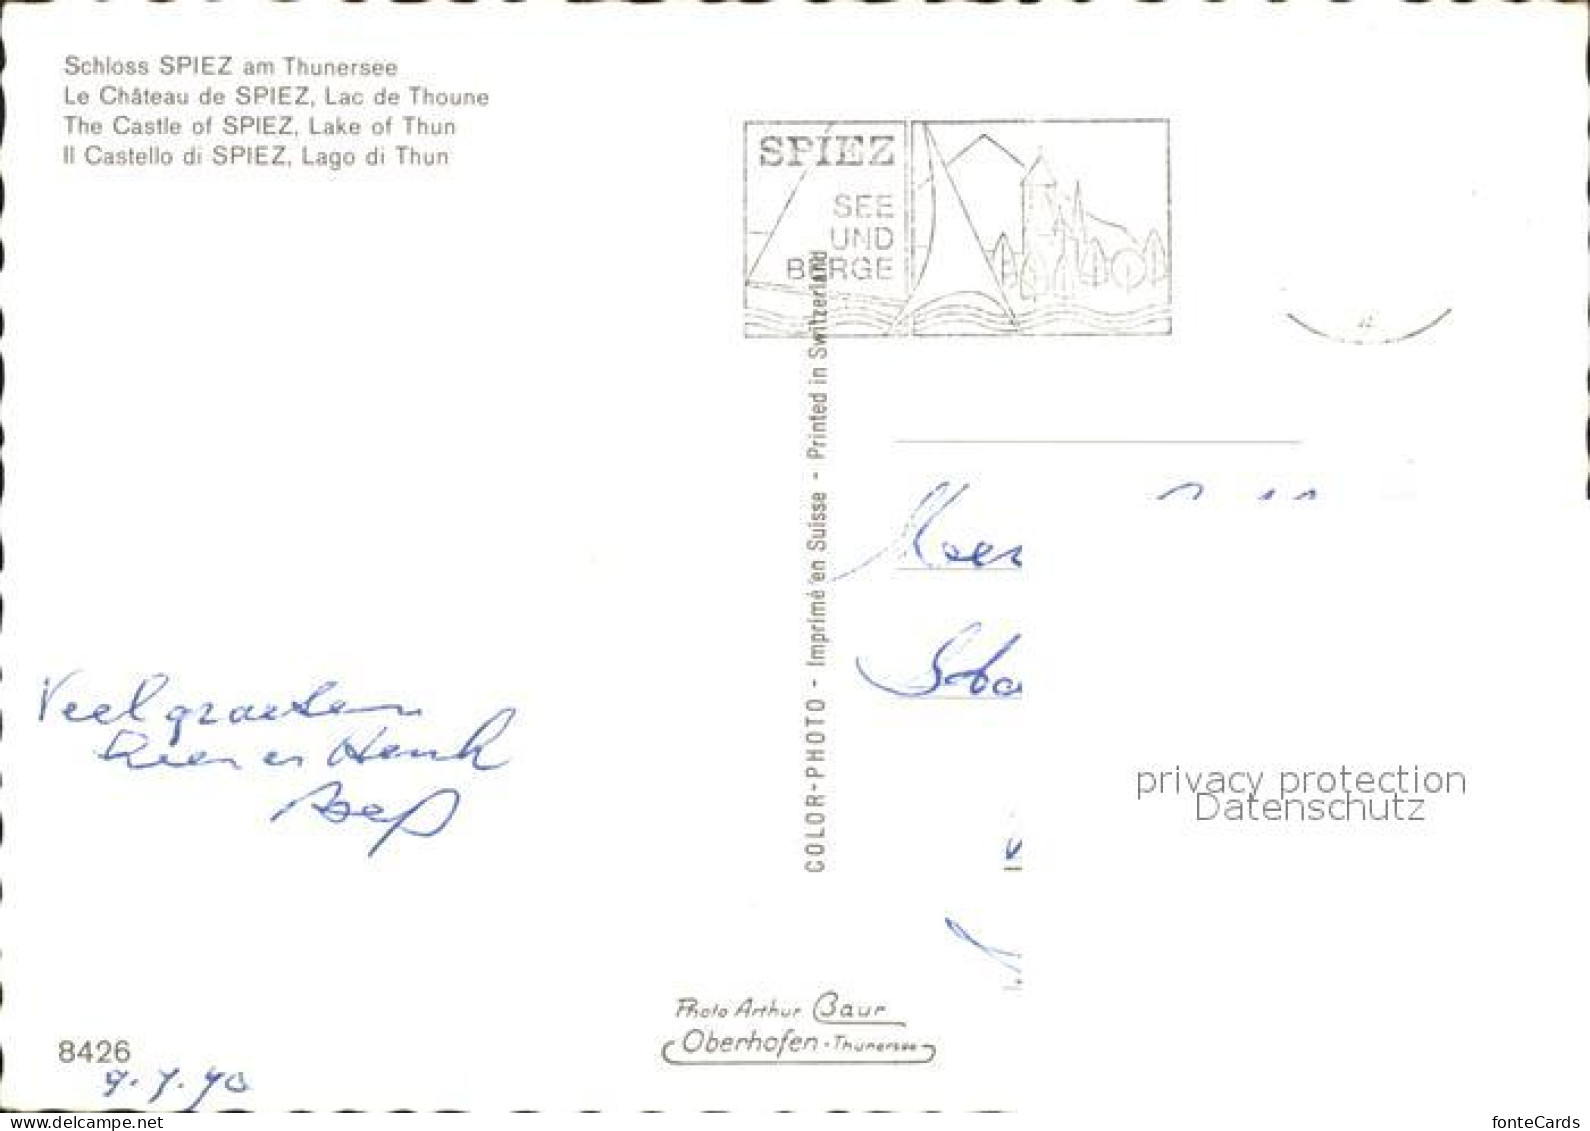 Schloss SPIEZ am Thunersee
Le Château de SPIEZ, Lac de Thoune
The Castle of SPIEZ, Lake of Thun
Il Castello di SPIEZ, Lago di Thun
SPIEZ
SEE
UND
BERGE
COLOR-PHOTO - Imprimé en Suisse - Printed in Switzerland
Veel groeten
Rien en Henk
privacy protection
Datenschutz
Photo Arthur Baur
Oberhofen - Thunersee
8426
9.7.70
www.delcampe.net
fonteCards